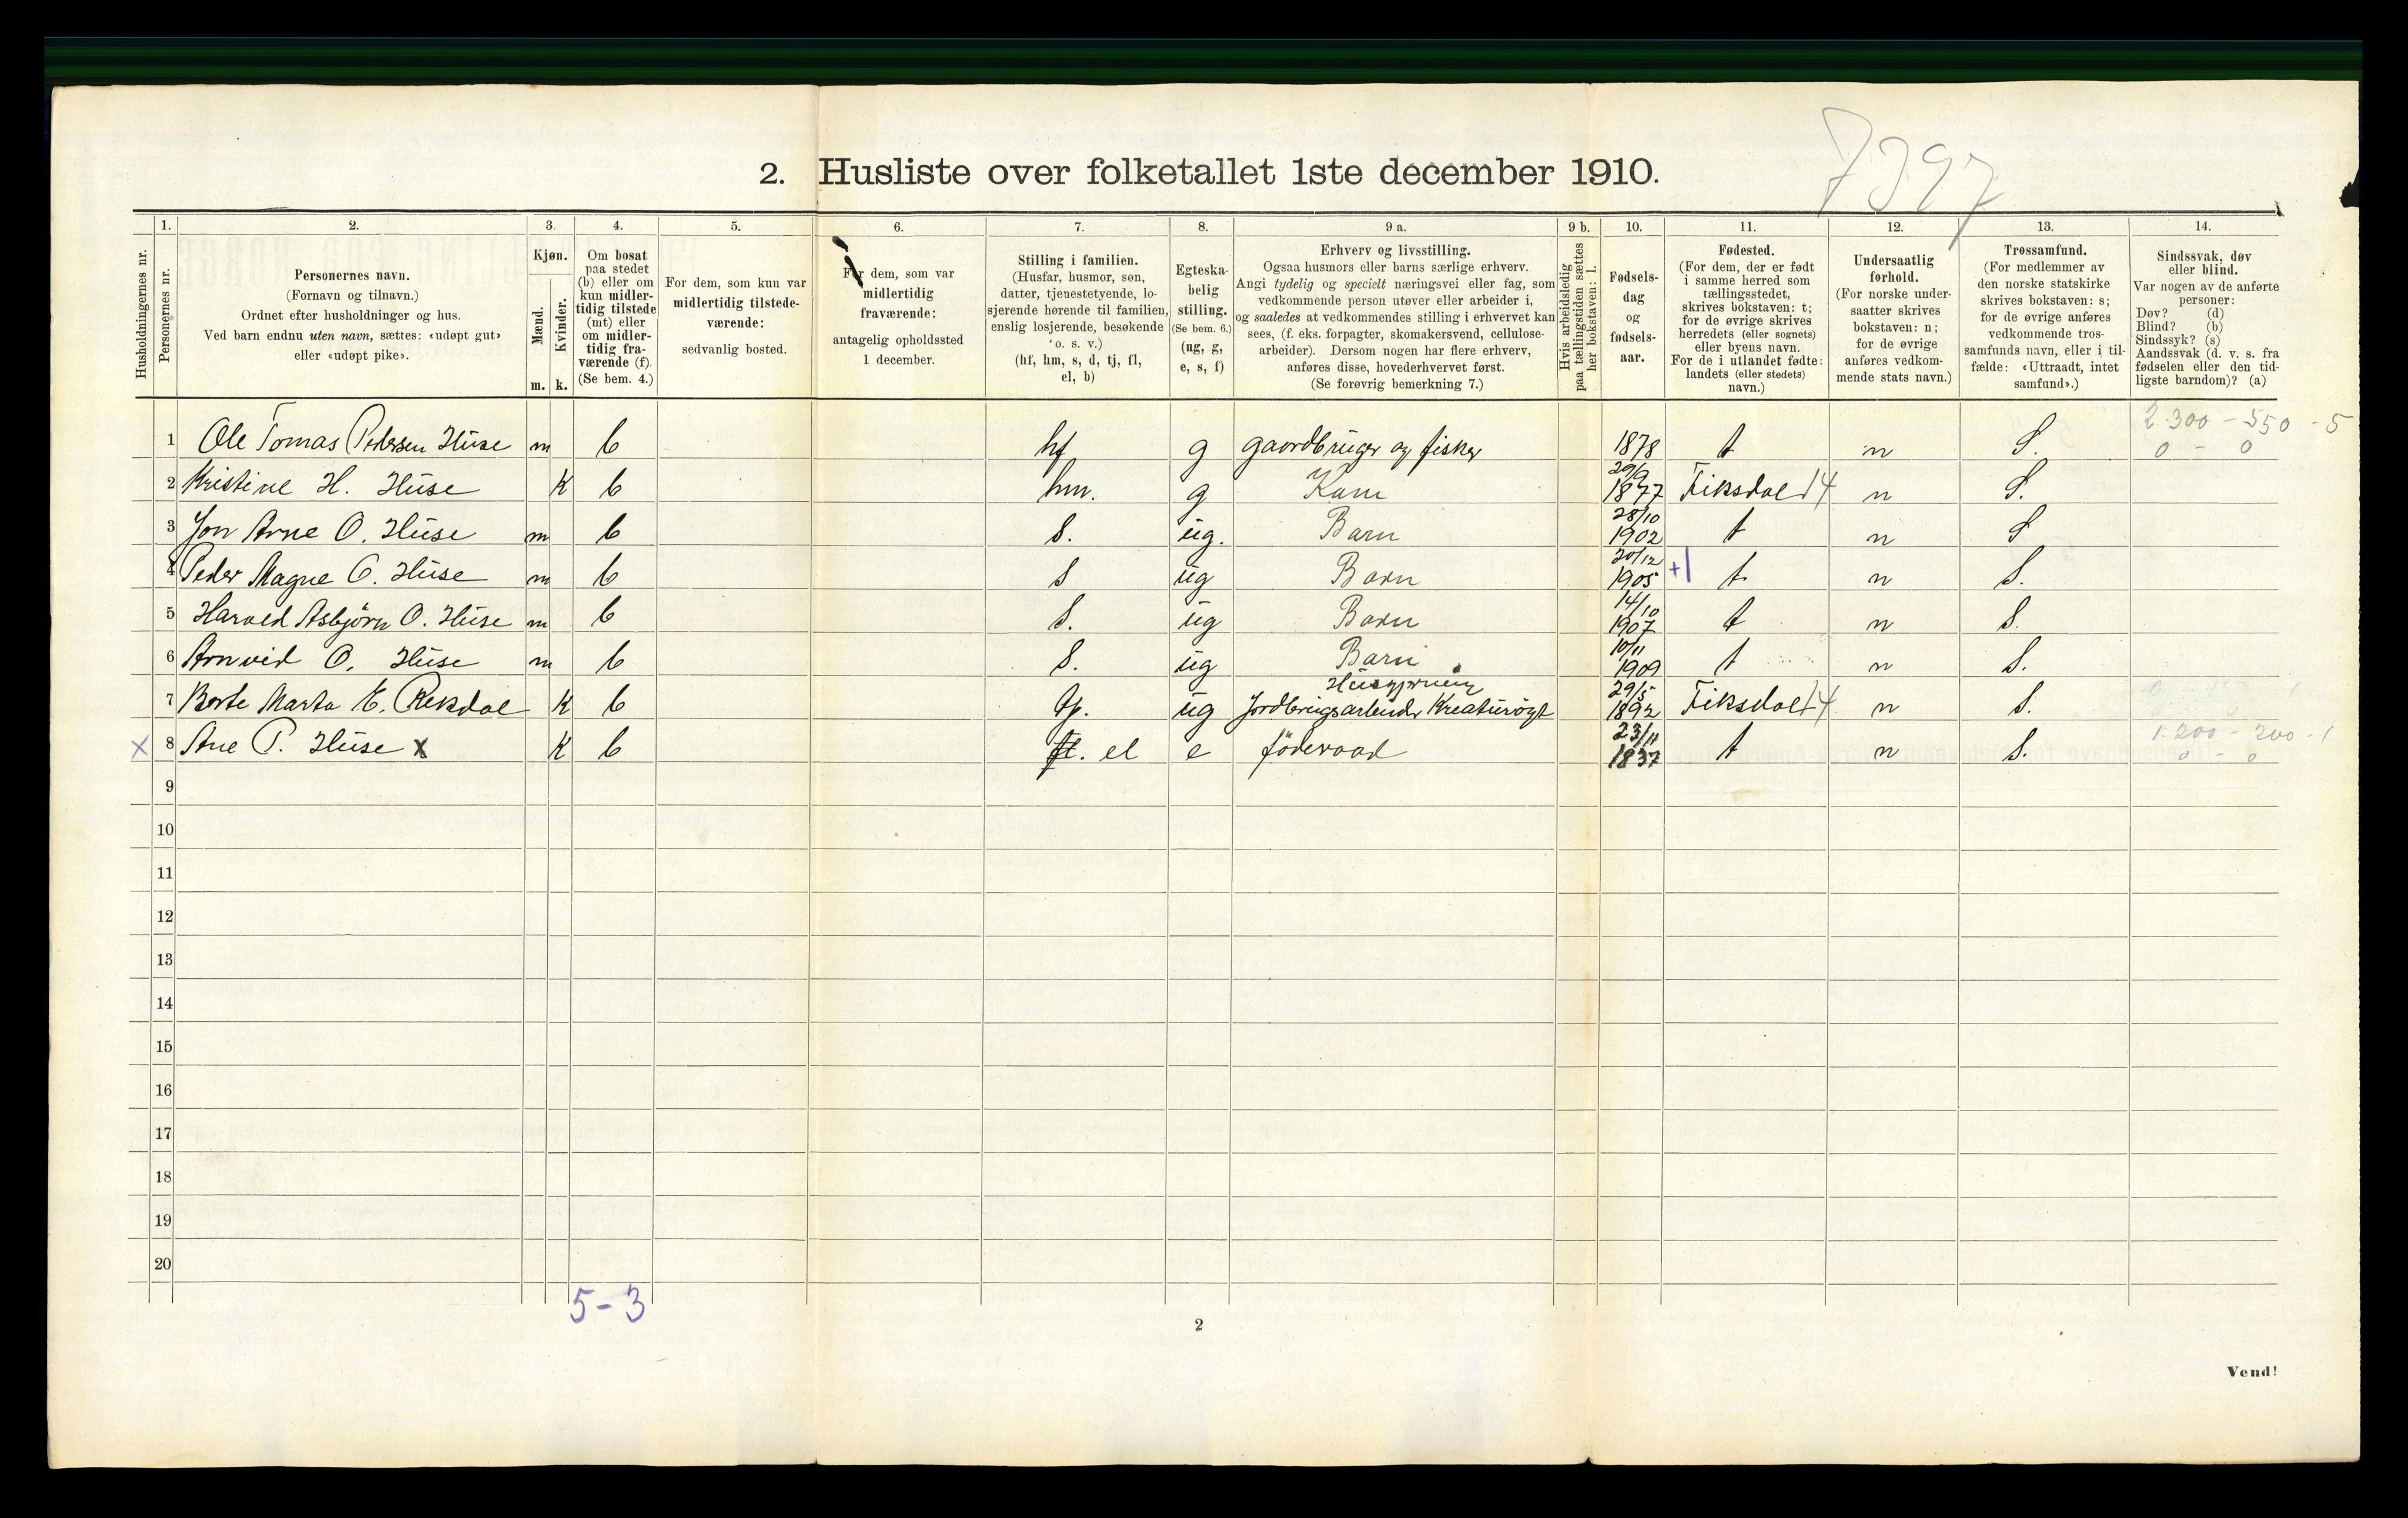 7397
2. Husliste over folketallet 1ste december 1910.
Husholdningernes nr.
1. Personernes nr.
2. Personernes navn.
(Fornavn og tilnavn.)
Ordnet efter husholdninger og hus.
Ved barn endnu uten navn, sættes: «udøpt gut»
eller «udøpt pike».
3. Kjøn.
Mænd. m.
Kvinder. k.
4. Om bosat
paa stedet
(b) eller om
kun midler-
tidig tilstede
(mt) eller
om midler-
tidig fra-
værende (f).
(Se bem. 4.)
5. For dem, som kun var
midlertidig tilstede-
værende:
sedvanlig bosted.
6. For dem, som var
midlertidig
fraværende:
antagelig opholdssted
1 december.
7. Stilling i familien.
(Husfar, husmor, søn,
datter, tjenestetyende, lo-
sjerende hørende til familien,
enslig losjerende, besøkende
o. s. v.)
(hf, hm, s, d, tj, fl,
el, b)
8. Egteska-
belig
stilling.
(Se bem. 6.)
(ug, g,
e, s, f)
9 a. Erhverv og livsstilling.
Ogsaa husmors eller barns særlige erhverv.
Angi tydelig og specielt næringsvei eller fag, som
vedkommende person utøver eller arbeider i,
og saaledes at vedkommendes stilling i erhvervet kan
sees, (f. eks. forpagter, skomakersvend, cellulose-
arbeider). Dersom nogen har flere erhverv,
anføres disse, hovederhvervet først.
(Se forøvrig bemerkning 7.)
9 b. Hvis arbeidsledig
paa tællingstiden sættes
her bokstaven: l.
10. Fødsels-
dag
og
fødsels-
aar.
11. Fødested.
(For dem, der er født
i samme herred som
tællingsstedet,
skrives bokstaven: t;
for de øvrige skrives
herredets (eller sognets)
eller byens navn.
For de i utlandet fødte:
landets (eller stedets)
navn.)
12. Undersaatlig
forhold.
(For norske under-
saatter skrives
bokstaven: n;
for de øvrige
anføres vedkom-
mende stats navn.)
13. Trossamfund.
(For medlemmer av
den norske statskirke
skrives bokstaven: s;
for de øvrige anføres
vedkommende tros-
samfunds navn, eller i til-
fælde: «Uttraadt, intet
samfund».)
14. Sindssvak, døv
eller blind.
Var nogen av de anførte
personer:
Døv? (d)
Blind? (b)
Sindssyk? (s)
Aandssvak (d. v. s. fra
fødselen eller den tid-
ligste barndom)? (a)
2.300 - 550 - 5
1 Ole Tomas Pedersen Huse m b hf g gaardbruger og fisker 1878 t n S. 0 - 0
2 Kristine H. Huse K b hm. g Kone 29/9 1877 Fiksdal 14 n S.
3 Jon Arne O. Huse m b S. ug. Barn 28/10 1902 t n S
4 Peder Magne O. Huse m b S ug Barn 20/12 1905 +1 t n S.
5 Harald Asbjørn O. Huse m b S. ug Barn 14/10 1907 t n S.
6 Arnvid O. Huse m b S. ug Barn 10/11 1909 t n S.
Husgjerning
7 Berte Marta E. Rekdal K b tj. ug Jordbrugsarbeider Kreaturrøgt 29/5 1892 Fiksdal 14 n S.
x 8 Ane P. Huse x K b fl. el e föderaad 23/11 1837 t n S. 1.200 - 200 - 1
0 - 0
9
10
11
12
13
14
15
16
17
18
19
20
5-3
2
Vend!